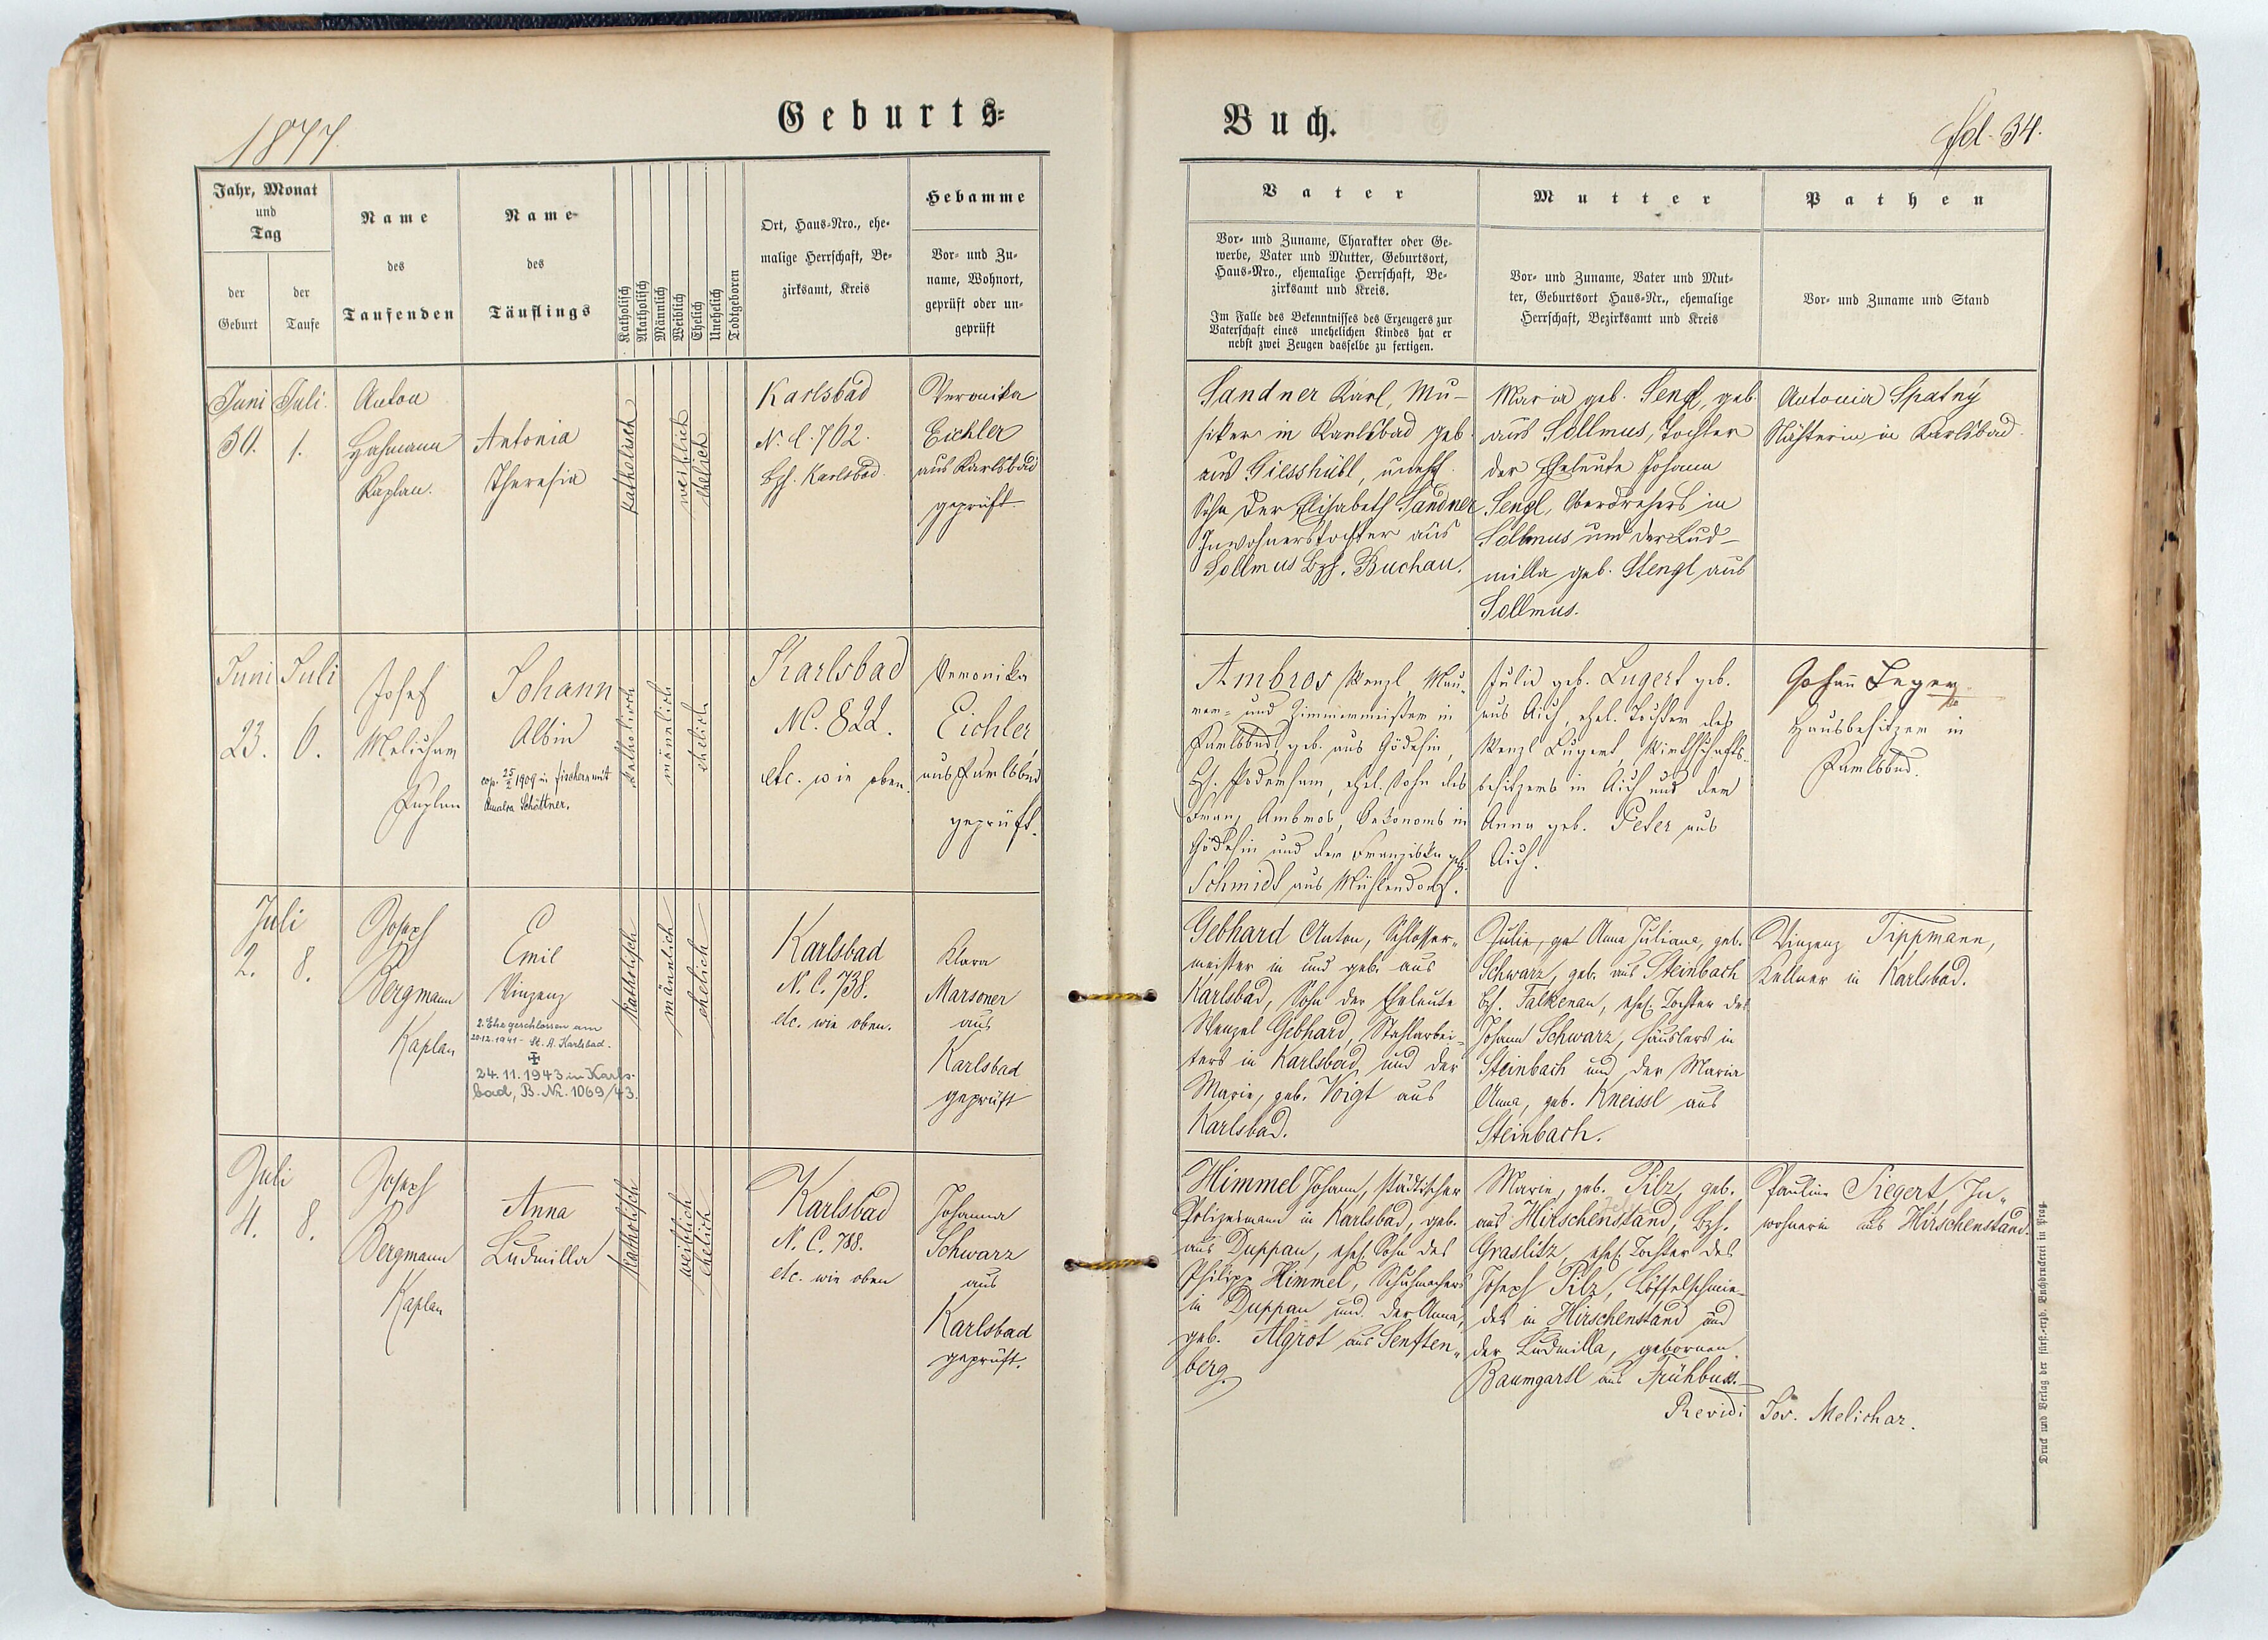 1877.
Geburts-
Jahr, Monat
und
Tag
der
Geburt
der
Taufe
Name
des
Taufenden
Name
des
Täuflings
Katholisch
Akatholisch
Männlich
Weiblich
Ehelich
Unehelich
Todtgeboren
Ort, Haus-Nro., ehe-
malige Herrschaft, Be-
zirksamt, Kreis
Hebamme
Vor- und Zu-
name, Wohnort,
geprüft oder un-
geprüft
Juni
30.
Juli.
1.
Anton
Hahmann
Kaplan.
Antonia
Theresia
katholisch
weiblich
ehelich
Karlsbad
N. C. 702.
Bzh. Karlsbad.
Veronika
Eichler
aus Karlsbad
geprüft.
Juni
23.
Juli
6.
Josef
Melichar
Kaplan
Johann
Albin
cop. 25/2 1909 in Fischern mit
Amalia Schöttner.
katholisch
männlich
ehelich
Karlsbad
NC. 822.
etc. wie oben.
Veronika
Eichler
aus Karlsbad
geprüft.
Juli
2. 8.
Joseph
Bergmann
Kaplan
Emil
Vinzenz
2. Ehe geschlossen am
20.12.1941 - St. A. Karlsbad.
✠
24.11.1943 in Karls-
bad, B. Nr. 1069/43.
katholisch
männlich
ehelich
Karlsbad
N. C. 738.
etc. wie oben.
Klara
Marsoner
aus
Karlsbad
geprüft
Juli
4. 8.
Joseph
Bergmann
Kaplan
Anna
Ludmilla
katholisch
weiblich
ehelich
Karlsbad
N. C. 788.
etc. wie oben
Johanna
Schwarz
aus
Karlsbad
geprüft.
Buch.
Fol. 34.
Vater
Vor- und Zuname, Charakter oder Ge-
werbe, Vater und Mutter, Geburtsort,
Haus-Nro., ehemalige Herrschaft, Be-
zirksamt und Kreis.
Im Falle des Bekenntnisses des Erzeugers zur
Vaterschaft eines unehelichen Kindes hat er
nebst zwei Zeugen dasselbe zu fertigen.
Mutter
Vor- und Zuname, Vater und Mut-
ter, Geburtsort Haus-Nr., ehemalige
Herrschaft, Bezirksamt und Kreis
Pathen
Vor- und Zuname und Stand
Sandner Karl, Mu-
siker in Karlsbad geb.
aus Giesshübl, unehl.
Sohn der Elisabeth Sandner
Inwohnerstochter aus
Sollmus Bzh. Buchau.
Maria geb. Sengl, geb.
aus Sollmus, Tochter
der Eheleute Johann
Sengl, Oberdrehers in
Sollmus und der Lud-
milla geb. Stengl aus
Sollmus.
Antonia Spatny
Nähterin in Karlsbad.
Ambros Wenzl, Mau-
rer- und Zimmermeister in
Karlsbad, geb. aus Gödesin,
Bz. Podersam, ehel. Sohn des
Franz Ambros, Oekonoms in
Gödesin und der Franziska geb.
Schmidt aus Mühlendorf.
Julia geb. Lugert geb.
aus Aich, ehel. Tochter des
Wenzl Lugert, Wirthschafts-
besitzers in Aich und der
Anna geb. Peter aus
Aich.
Johann Leger
Hausbesitzer in
Karlsbad.
Gebhard Anton, Schlosser-
meister in und geb. aus
Karlsbad, Sohn der Eheleute
Wenzel Gebhard, Stahlarbei-
ters in Karlsbad und der
Marie, geb. Voigt aus
Karlsbad.
Julie, geb Anna Juliana, geb.
Schwarz, geb. aus Steinbach
Bzh. Falkenau, ehel. Tochter des
Johann Schwarz, Häuslers in
Steinbach und der Maria
Anna, geb. Kneissl aus
Steinbach.
Vinzenz Tippmann,
Kellner in Karlsbad.
Himmel Johann, städtischer
Polizeimann in Karlsbad, geb.
aus Duppau, ehel. Sohn des
Philipp Himmel, Schuhmachers
in Duppau und der Anna,
geb. Algrot aus Senften-
berg.
Marie, geb. Pilz, geb.
aus Hirschenstand, Bzh.
Graslitz, ehel. Tochter des
Joseph Pilz, Löffelschmie-
des in Hirschenstand und
der Ludmilla, gebornen
Baumgartl aus Frühbuss.
Pauline Siegert, In-
wohnerin aus Hirschenstand.
Revidi Jos. Melichar.
Druck und Verlag der fürst.-erzb. Buchdruckerei in Prag.